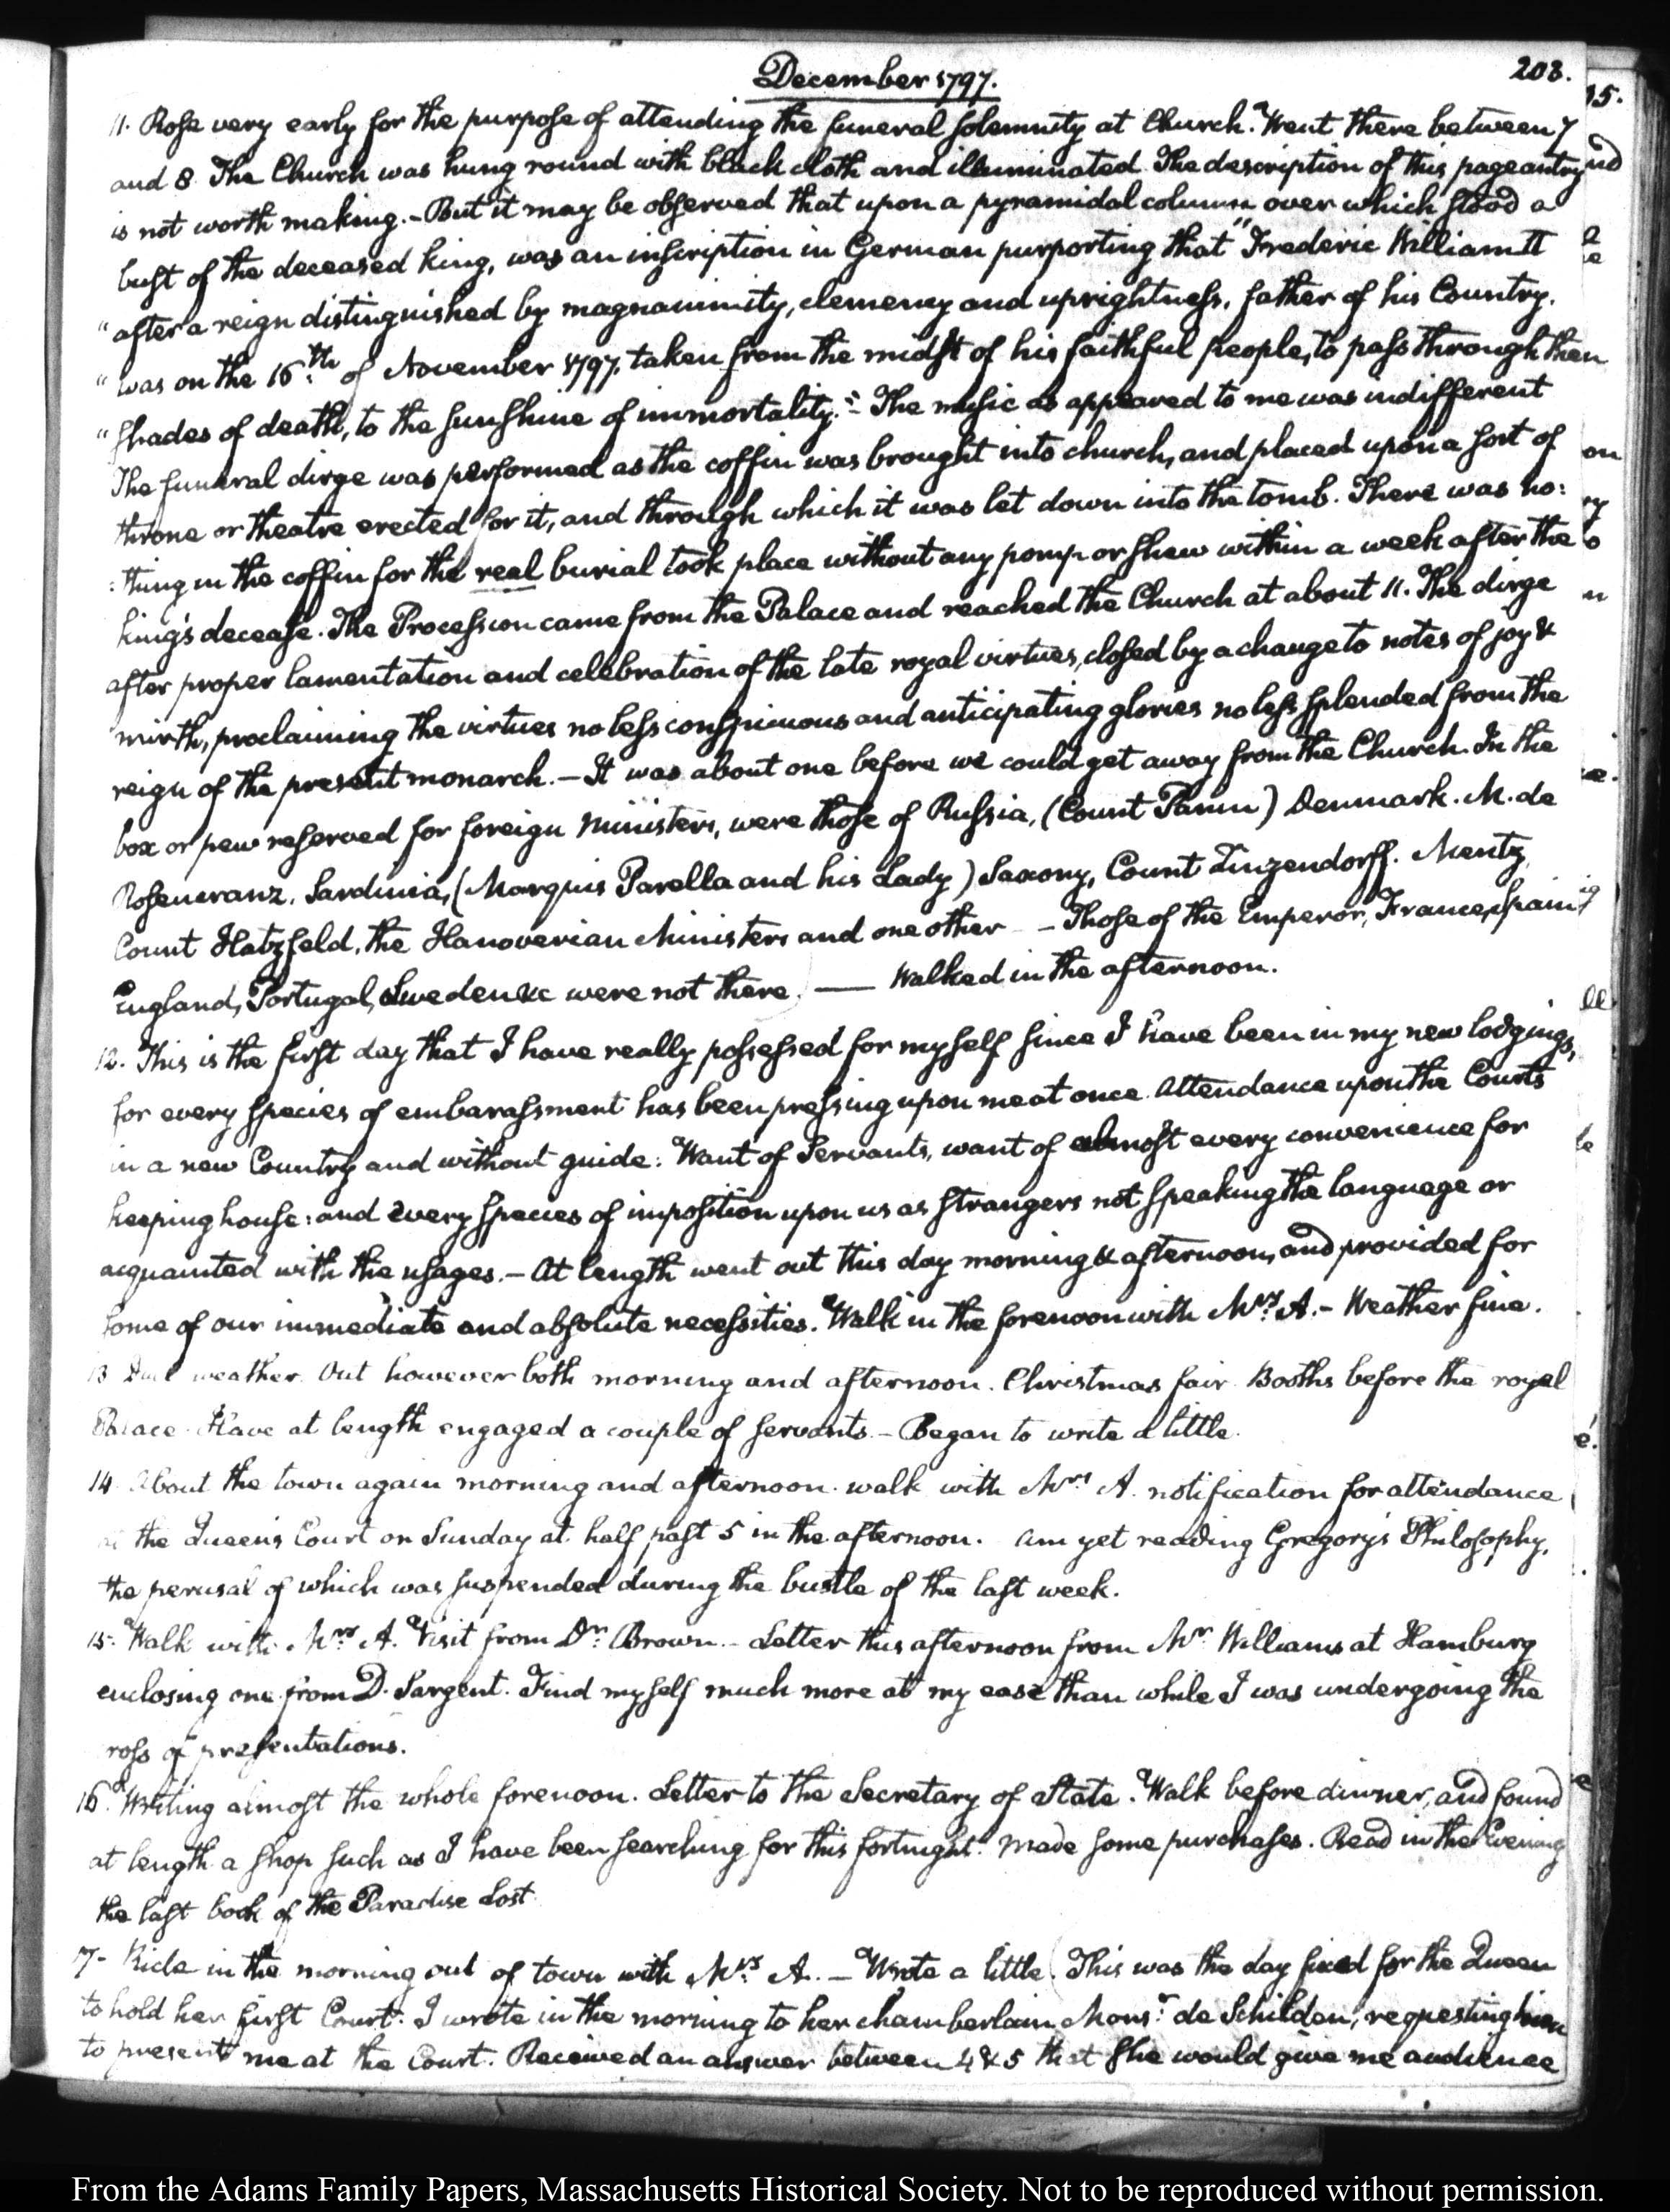 December 1797.
203.
11. Rose very early for the purpose of attending the funeral solemnity at Church. Went there between 7
and 8. The Church was hung round with black cloth and illuminated. The description of this pageantry
is not worth making. – But it may be observed that upon a pyramidal column over which stood a
bust of the deceased king, was an inscription in German purporting that "Frederic William II
"after a reign distinguished by magnanimity, clemency and uprightness, father of his Country.
"was on the 16th of November 1797. taken from the midst of his faithful people, to pass through the
"shades of death, to the sunshine of immortality." – The music as appeared to me was indifferent
The funeral dirge was performed as the coffin was brought into church, and placed upon a sort of
throne or theatre erected for it, and through which it was let down into the tomb. There was no:
:thing in the coffin for the real burial took place without any pomp or shew within a week after the
king's decease. The Procession came from the Palace and reached the Church at about 11. The dirge
after proper lamentation and celebration of the late royal virtues, closed by a change to notes of joy &
mirth, proclaiming the virtues no less conspicuous and anticipating glories no less splended from the
reign of the present monarch. – It was about one before we could get away from the Church. In the
box or pew reserved for foreign Ministers, were those of Russia, (Count Panin) Denmark. M. de
Rosencranz. Sardinia, (Marquis Parella and his Lady) Saxony, Count Zinzendorff. Mentz,
Count Hatzfeld, the Hanoverian Ministers and one other – Those of the Emperor, France, Spain,
England, Portugal, Sweden &c were not there. — Walked in the afternoon.
12. This is the first day that I have really possessed for myself since I have been in my new lodgings,
for every species of embarassment has been pressing upon me at once. Attendance upon the Courts
in a new Country and without guide: Want of Servants, want of almost every convenience for
keeping house: and every species of imposition upon us as strangers not speaking the language or
acquainted with the usages. – At length went out this day morning & afternoon, and provided for
some of our immediate and absolute necessities. Walk in the forenoon with Mrs. A. – Weather fine.
13 Dull weather. Out however both morning and afternoon. Christmas fair. Booths before the royal
Palace. Have at length engaged a couple of servants. – Began to write a little.
14. About the town again morning and afternoon. walk with Mrs. A. notification for attendance
at the Queen's Court on Sunday at half past 5 in the afternoon. Am yet reading Gregory's Philosophy,
the perusal of which was suspended during the bustle of the last week.
15. Walk with Mrs. A. Visit from Dr. Brown. – Letter this afternoon from Mr. Williams at Hamburg
enclosing one from D. Sargent. Find myself much more at my ease than while I was undergoing the
of presentations.
16. Writing almost the whole forenoon. Letter to the Secretary of State. Walk before dinner, and found
at length a shop such as I have been searching for this fortnight. Made some purchases. Read in the Evening
the last book of the Paradise Lost.
17 – Ride in the morning out of town with Mrs. A. – Wrote a little. This was the day fixed for the Queen
to hold her first Court. I wrote in the morning to her chamberlain Monsr. de Schilden, requesting him
to present me at the Court. Received an answer between 4 & 5 that she would give me audience
From the Adams Family Papers, Massachusetts Historical Society. Not to be reproduced without permission.